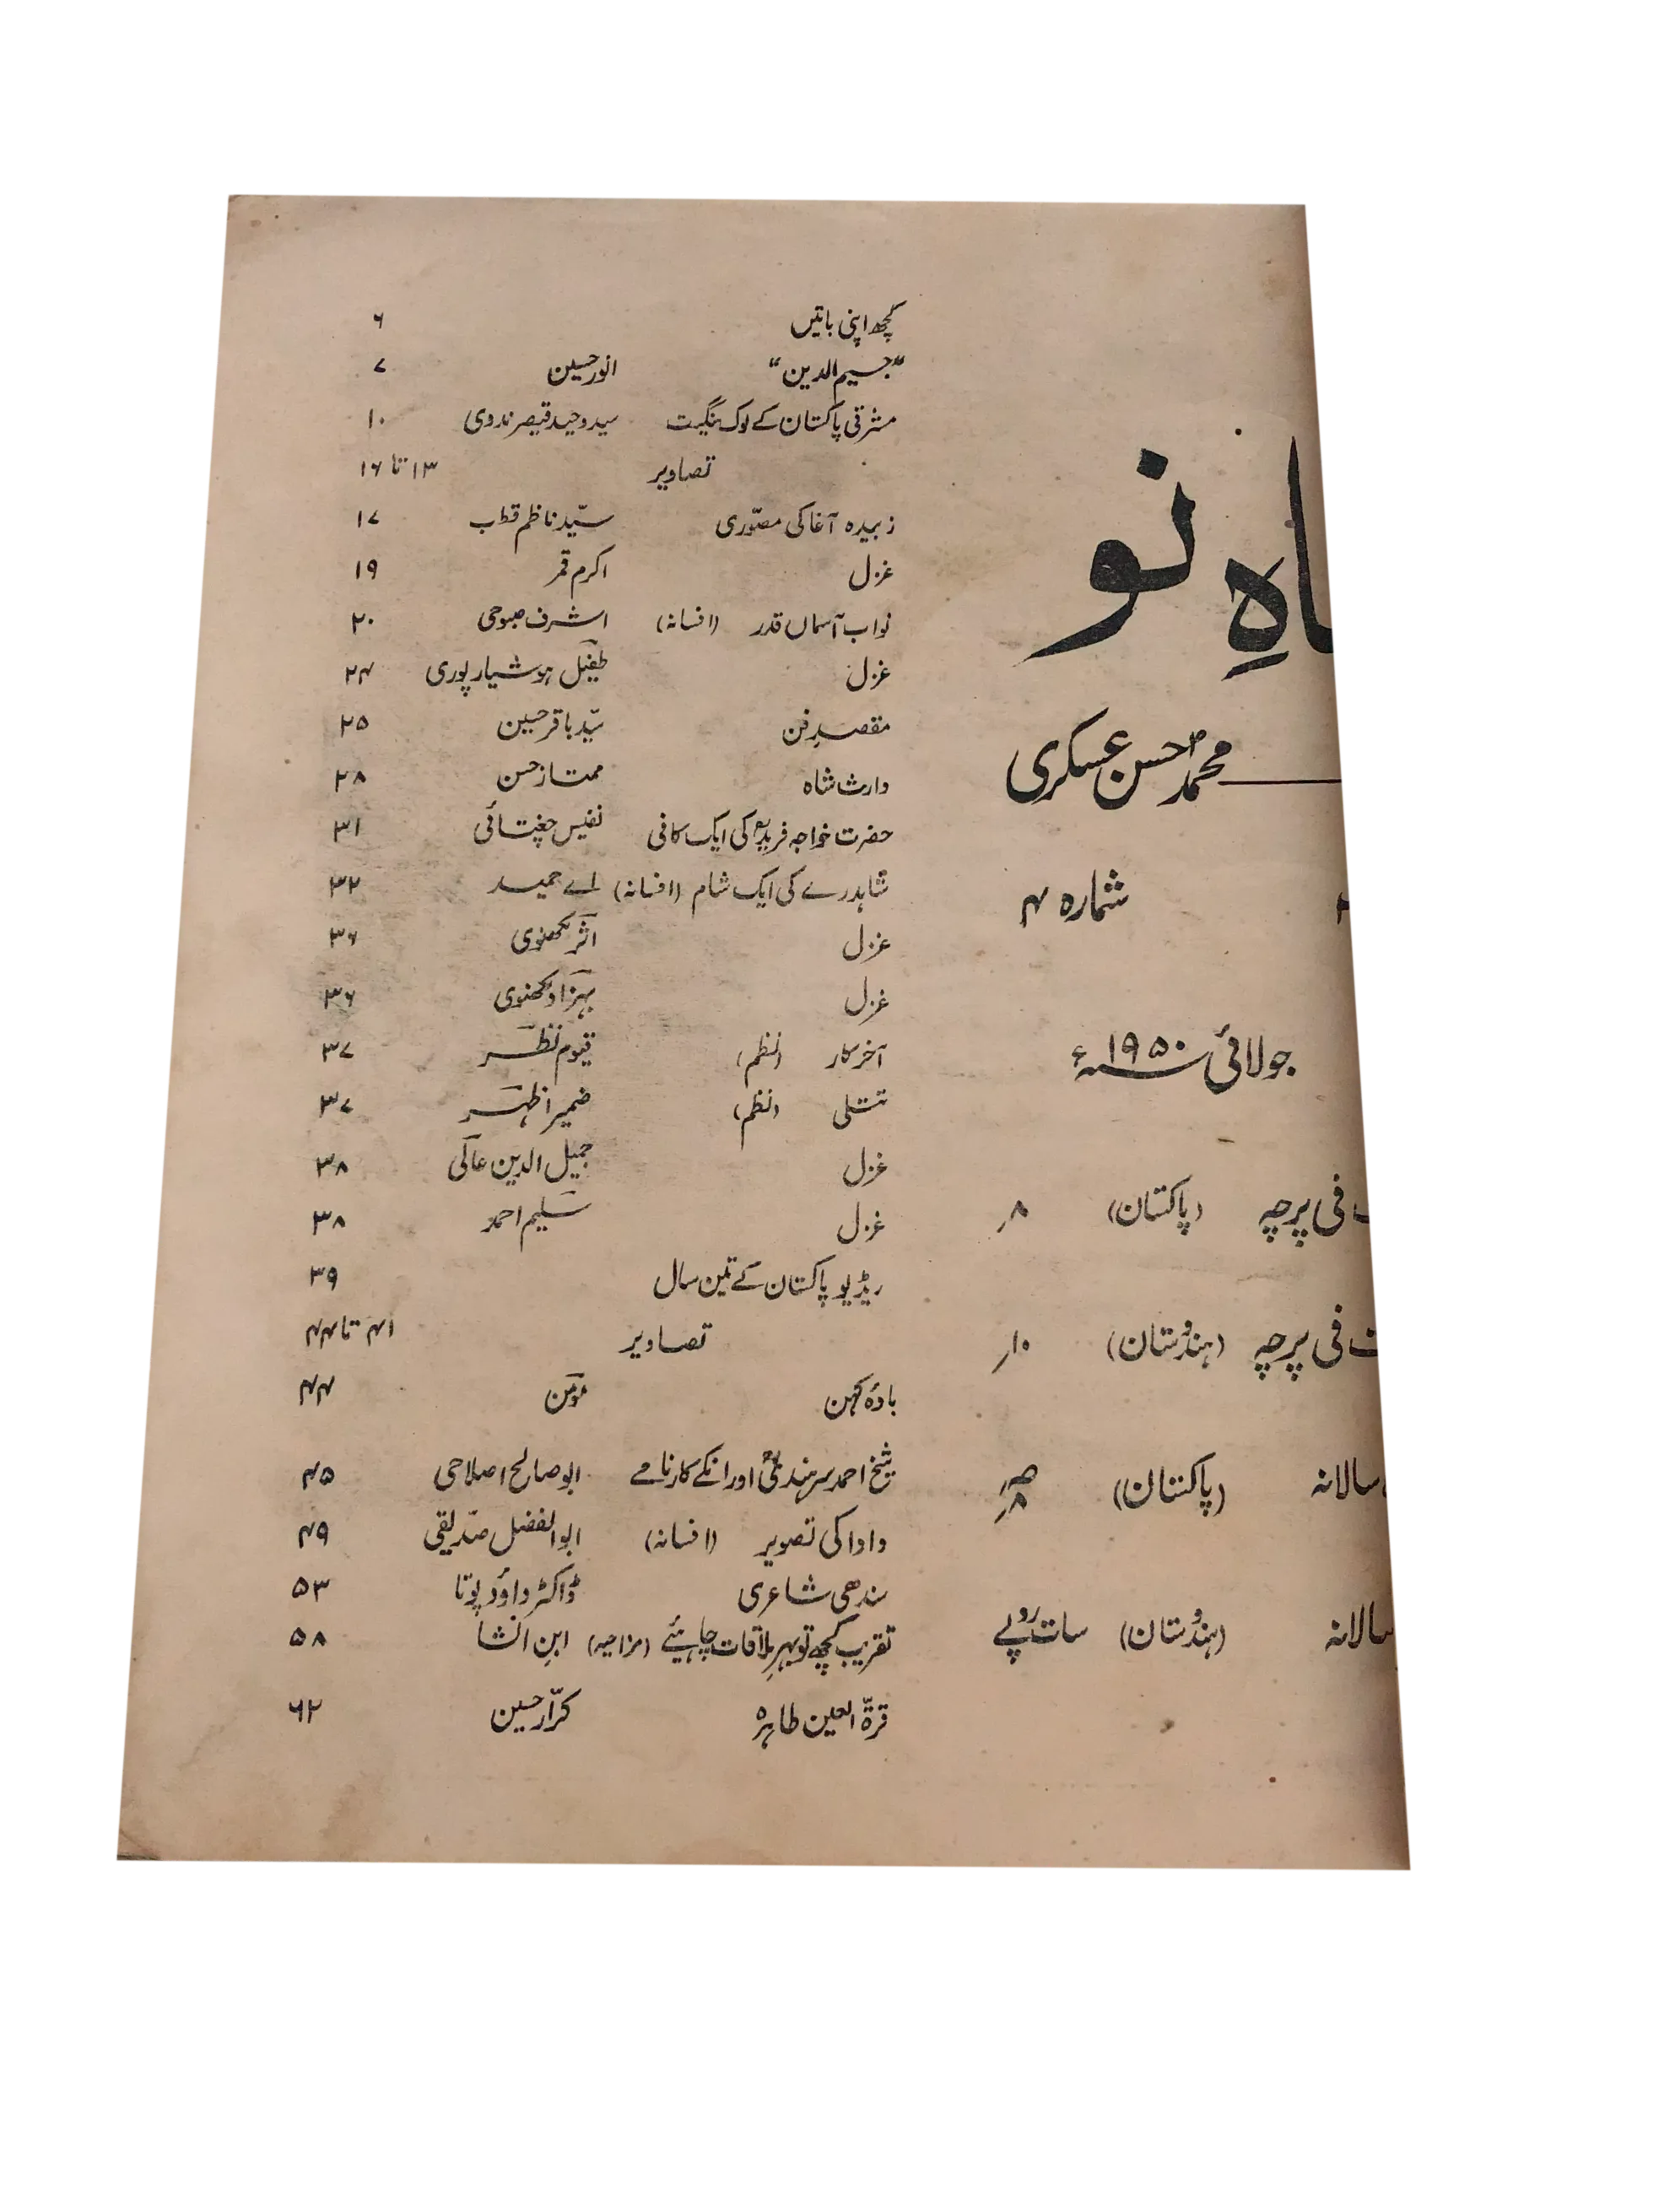 ماہِ نو
محمد حسن عسکری
شمارہ ۴
جولائی ۱۹۵۰ء
فی پرچہ (پاکستان) ۸؍
فی پرچہ (ہندوستان) ۱۰؍
سالانہ (پاکستان)
سالانہ (ہندوستان) سات روپے
کچھ اپنی باتیں ۶
”جسیم الدین“ انور حسین ۷
مشرقی پاکستان کے لوک سنگیت سید وحید قیصر ندوی ۱۰
تصاویر ۱۳ تا ۱۶
زبیدہ آغا کی مصوّری سیّد ناظم قطب ۱۷
غزل اکرم قمر ۱۹
نواب آسماں قدر (افسانہ) اشرف صبوحی ۲۰
غزل طفیل ہوشیارپوری ۲۴
مقصدِ فن سیّد باقر حسین ۲۵
وارث شاہ ممتاز حسن ۲۸
حضرت خواجہ فریدؒ کی ایک کافی نفیس چغتائی ۳۱
شاہدرے کی ایک شام (افسانہ) اے حمید ۳۲
غزل اثر لکھنوی ۳۶
غزل بہزاد لکھنوی ۳۶
آخرکار (نظم) قیوم نظر ۳۷
تتلی (نظم) ضمیر اظہر ۳۷
غزل جمیل الدین عالی ۳۸
غزل سلیم احمد ۳۸
ریڈیو پاکستان کے تین سال ۳۹
تصاویر ۴۱ تا ۴۴
بادۂ کہن مومن ۴۴
شیخ احمد سرہندیؒ اور انکے کارنامے ابو صالح اصلاحی ۴۵
دادا کی تصویر (افسانہ) ابوالفضل صدّیقی ۴۹
سندھی شاعری ڈاکٹر داؤد پوتا ۵۳
تقریب کچھ تو بہرِ ملاقات چاہیئے (مزاحیہ) ابنِ انشا ۵۸
قرۃ العین طاہرہ کرّار حسین ۶۲